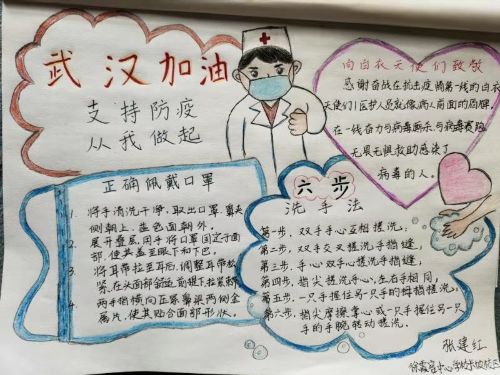 武汉加油
支持防疫
从我做起
向白衣天使们致敬
感谢奋战在抗击疫情第一线的白衣
天使们!医护人员就像病人前面的盾牌,
在一线奋力与病毒厮杀,与病毒赛跑
无畏无惧救助感染了
病毒的人。
正确佩戴口罩
1. 将手清洗干净,取出口罩,鼻夹
侧朝上,蓝色面朝外。
2. 展开叠层,用手将口罩固定于面
部,使其盖至眼下和下巴。
3. 将耳带拉至耳后,调整耳带松
紧,在头面部
4. 两手指横向正压鼻梁两侧金
属片,使其贴合面部形状。
六步
洗手法
第一步,双手手心互相搓洗。
第二步,双手交叉搓洗手指缝。
第三步,手心双手心搓洗手指缝。
第四步,指尖搓洗手心,左右手相同。
第五步,一只手握住另一只手的拇指搓洗。
第六步,指尖摩擦掌心或一只手握另一只
手的手腕转动搓洗。
张建红
徐霞客中心学校